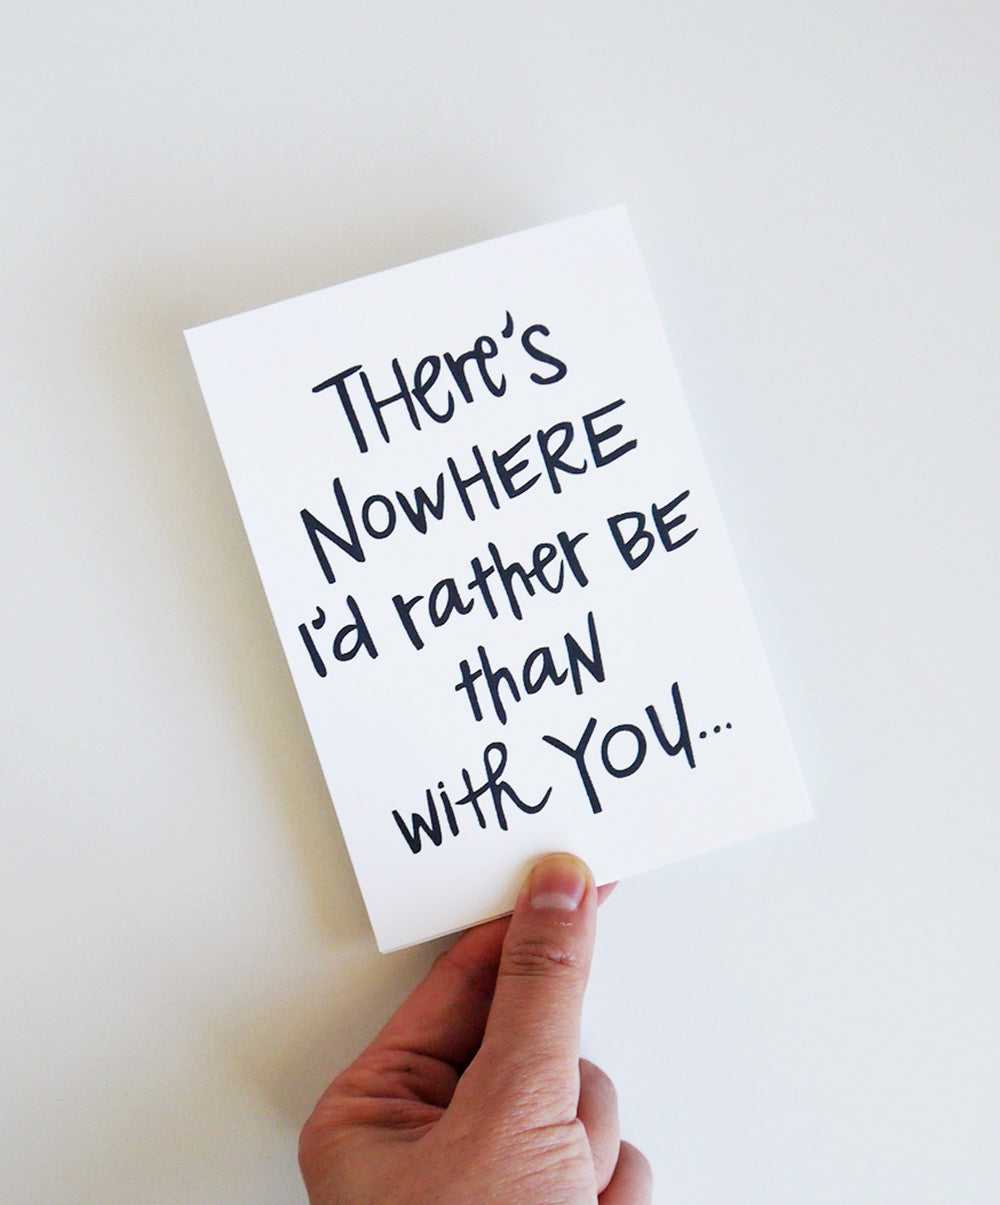 THere's
NowHERE
I'd rather BE
thaN
with YOU...